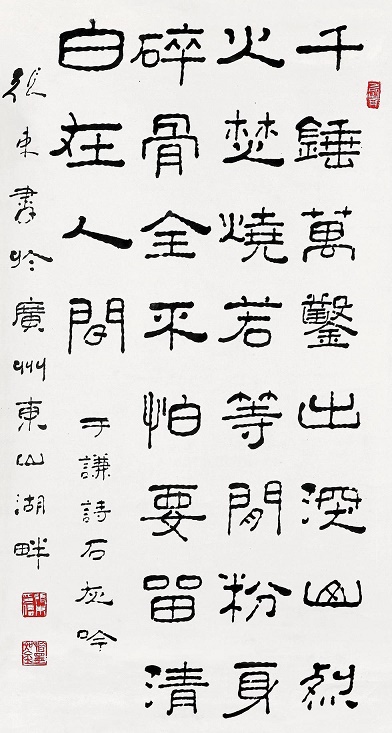 千錘萬鑿出深山烈
火焚燒若等閒粉身
碎骨全不怕要留清
白在人間
于謙詩石灰吟
張東書於廣州東山湖畔